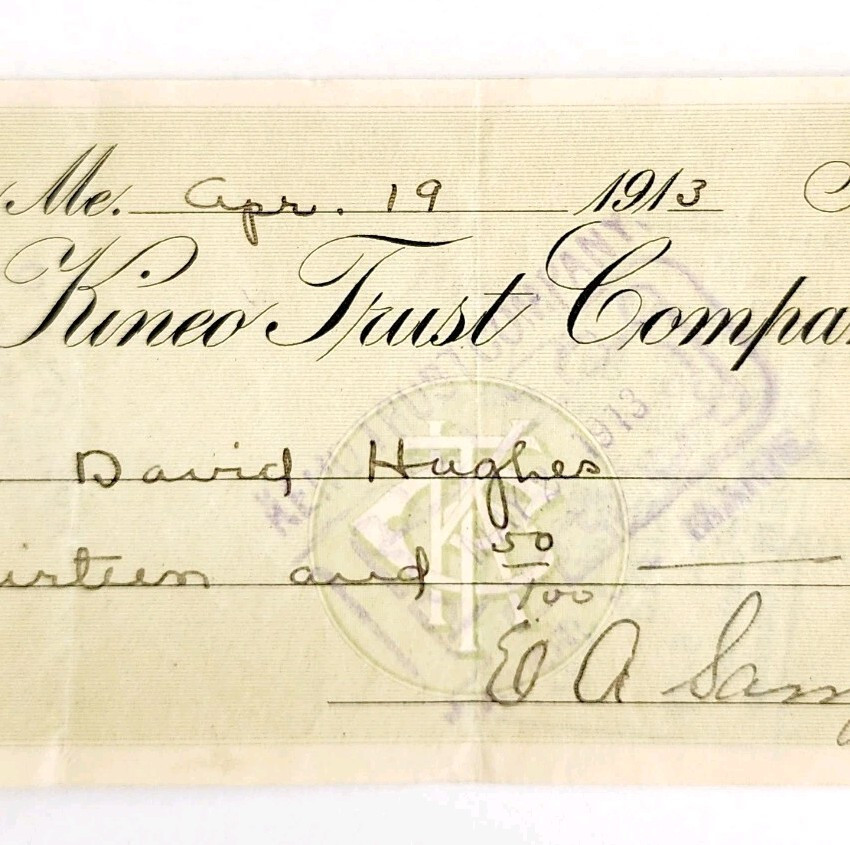 Me. Apr. 19 1913
Kineo Trust Compan
David Hughes
irteen and 50/100
E A Sam
KINEO TRUST COMPANY.
1913
MAINE.
KTC